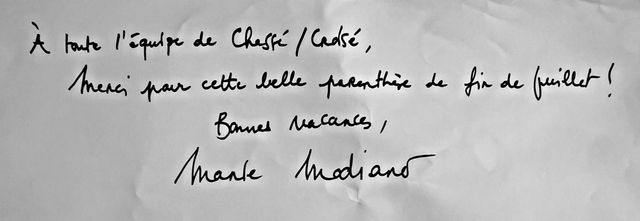 À toute l'équipe de Chassé/Croisé,
Merci pour cette belle parenthèse de fin de juillet !
Bonnes vacances,
Marie Modiano